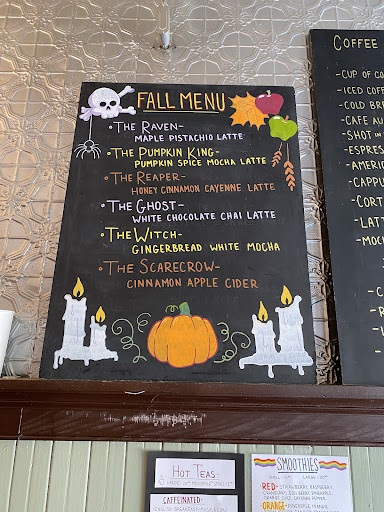 FALL MENU
• THE RAVEN-
MAPLE PISTACHIO LATTE
• THE PUMPKIN KING-
PUMPKIN SPICE MOCHA LATTE
• THE REAPER-
HONEY CINNAMON CAYENNE LATTE
• THE GHOST-
WHITE CHOCOLATE CHAI LATTE
• THE WITCH-
GINGERBREAD WHITE MOCHA
• THE SCARECROW-
CINNAMON APPLE CIDER
COFFEE
-CUP OF CO
-ICED COFF
-COLD BRE
-CAFE AU
-SHOT IN
-ESPRES
-AMERIC
-CAPPU
-CORT
-LATT
-MOC
HOT TEAS
CAFFEINATED:
SMOOTHIES
RED- STRAWBERRY, RASPBERRY,
ORANGE-